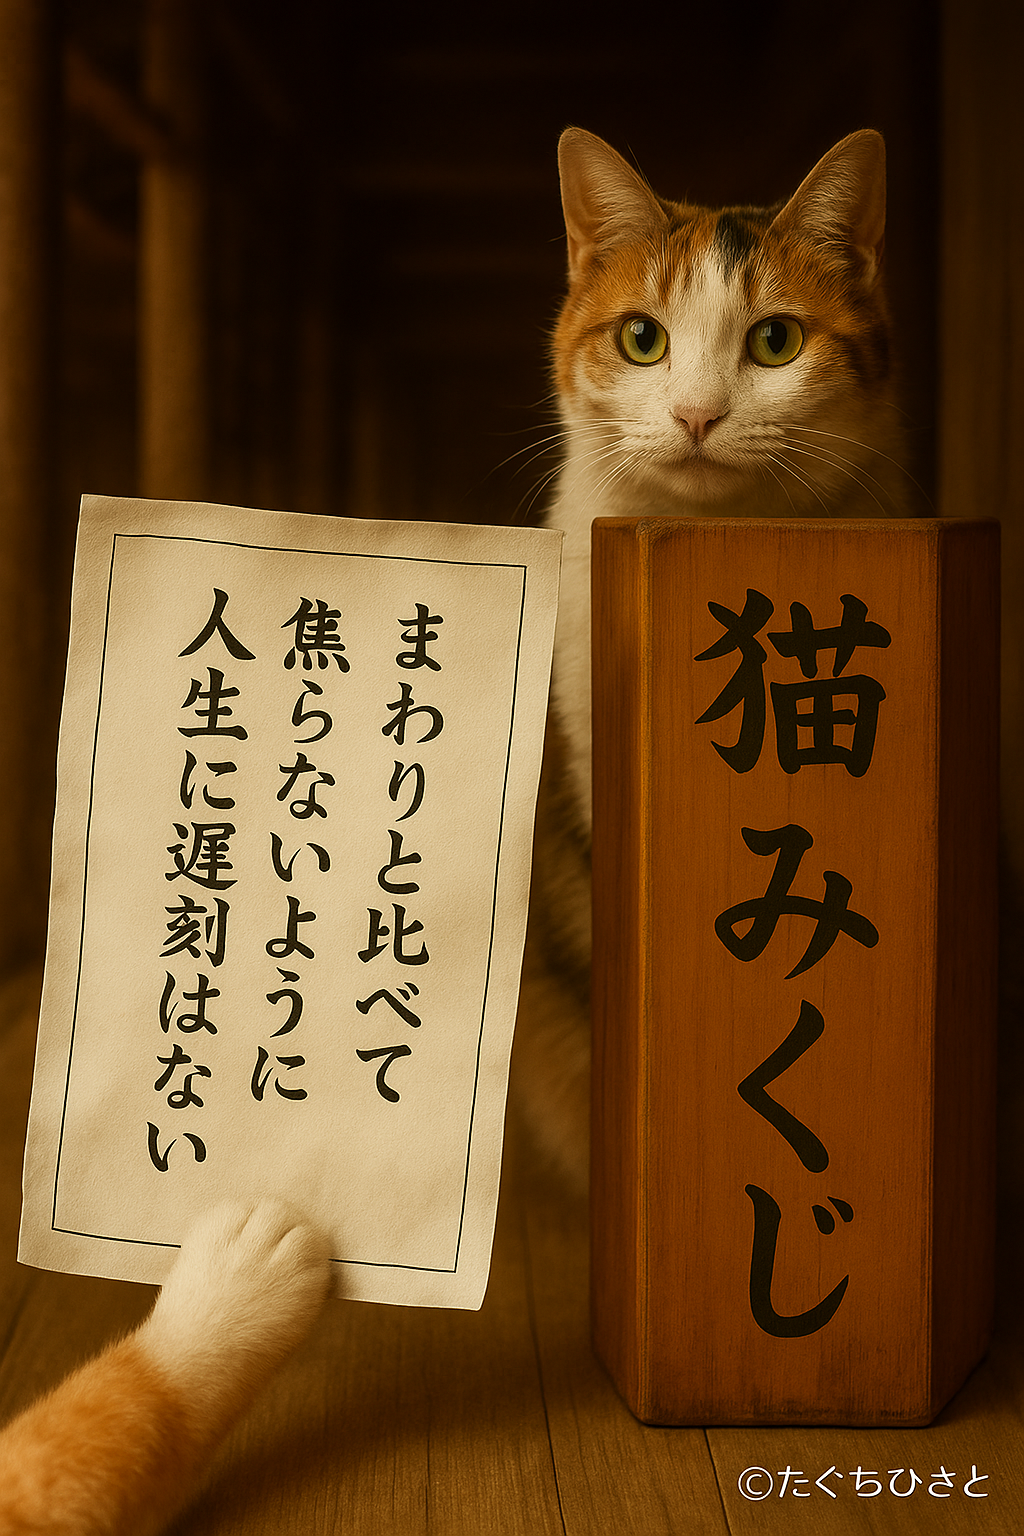 まわりと比べて
焦らないように
人生に遅刻はない
猫みくじ
©たぐちひさと